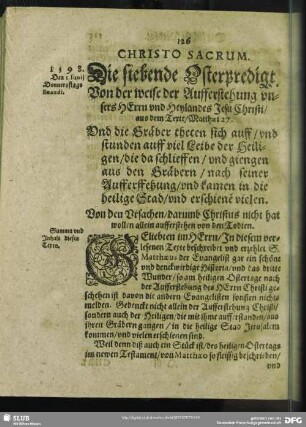 126
CHRISTO SACRUM.
1598.
Den 1 Junij
Donnerstags
Die siebende Osterpredigt.
Von der weise der Aufferstehung vn-
sers HErrn vnd Heylandes Jesu Christi/
aus dem Texte/Matthæi 27.
Vnd die Gräber theten sich auff/vnd
stunden auff viel Leibe der Heili-
gen/die da schlieffen/vnd giengen
aus den Gräbern/nach seiner
Aufferstehung/vnd kamen in die
heilige Stad/vnd erschienē vielen.
Von den Vrsachen/darumb Christus nicht hat
wollen allein aufferstehen von den Todten.
Summa vnd
Inhalt dieses
Texts.
GEliebten im HErrn/In diesem ver-
lesenen Texte beschreibet vnd erzehlet S.
Matthæus der Euangelist gar ein schöne
vnd denckwirdige Historia/vnd das dritte
Wunder/so am heiligen Ostertage nach
der Aufferstehung des HErrn Christi ge-
schehen ist davon die andern Euangelisten sonsten nichts
melden. Gedencket nicht allein der Aufferstehung Christi/
sondern auch der Heiligen die mit ihme aufferstanden/aus
ihren Gräbern gangen/in die heilige Stad Jerusalem
kommen/vnd vielen erschienen sind.
Weil denn diß auch ein Stück ist/des heiligen Ostertags
im newen Testament/von Matthæo so fleissig beschrieben/
vnd
SLUB
Wir führen Wissen.